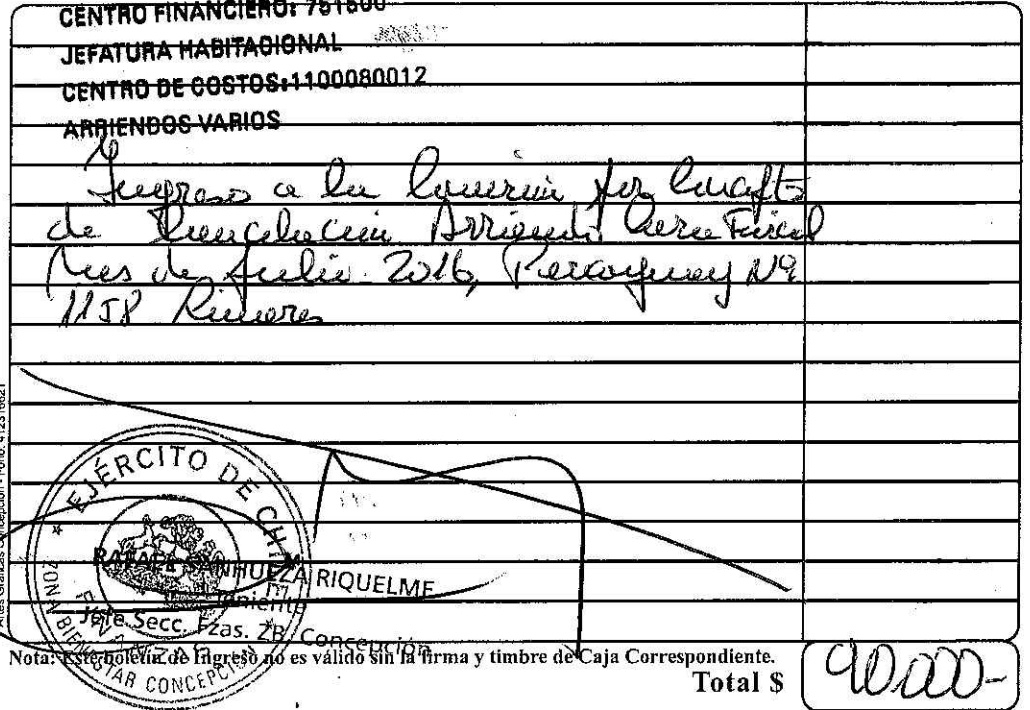 CENTRO FINANCIERO: 751500
JEFATURA HABITACIONAL
CENTRO DE COSTOS:1100080012
ARRIENDOS VARIOS
Ingreso a la por
de Arriendo Fiscal
Mes de Julio 2016, Paraguay Nº
1158
Artes Gráficas Concepción - Fono:
EJÉRCITO DE CHILE
RAFAEL SANHUEZA RIQUELME
Teniente
Jefe Secc. Fzas. ZB. Concepción
FINANZAS
ZONA BIENESTAR CONCEPCION
Nota: Este boletín de Ingreso no es válido sin la firma y timbre de Caja Correspondiente.
Total $ 90.000-